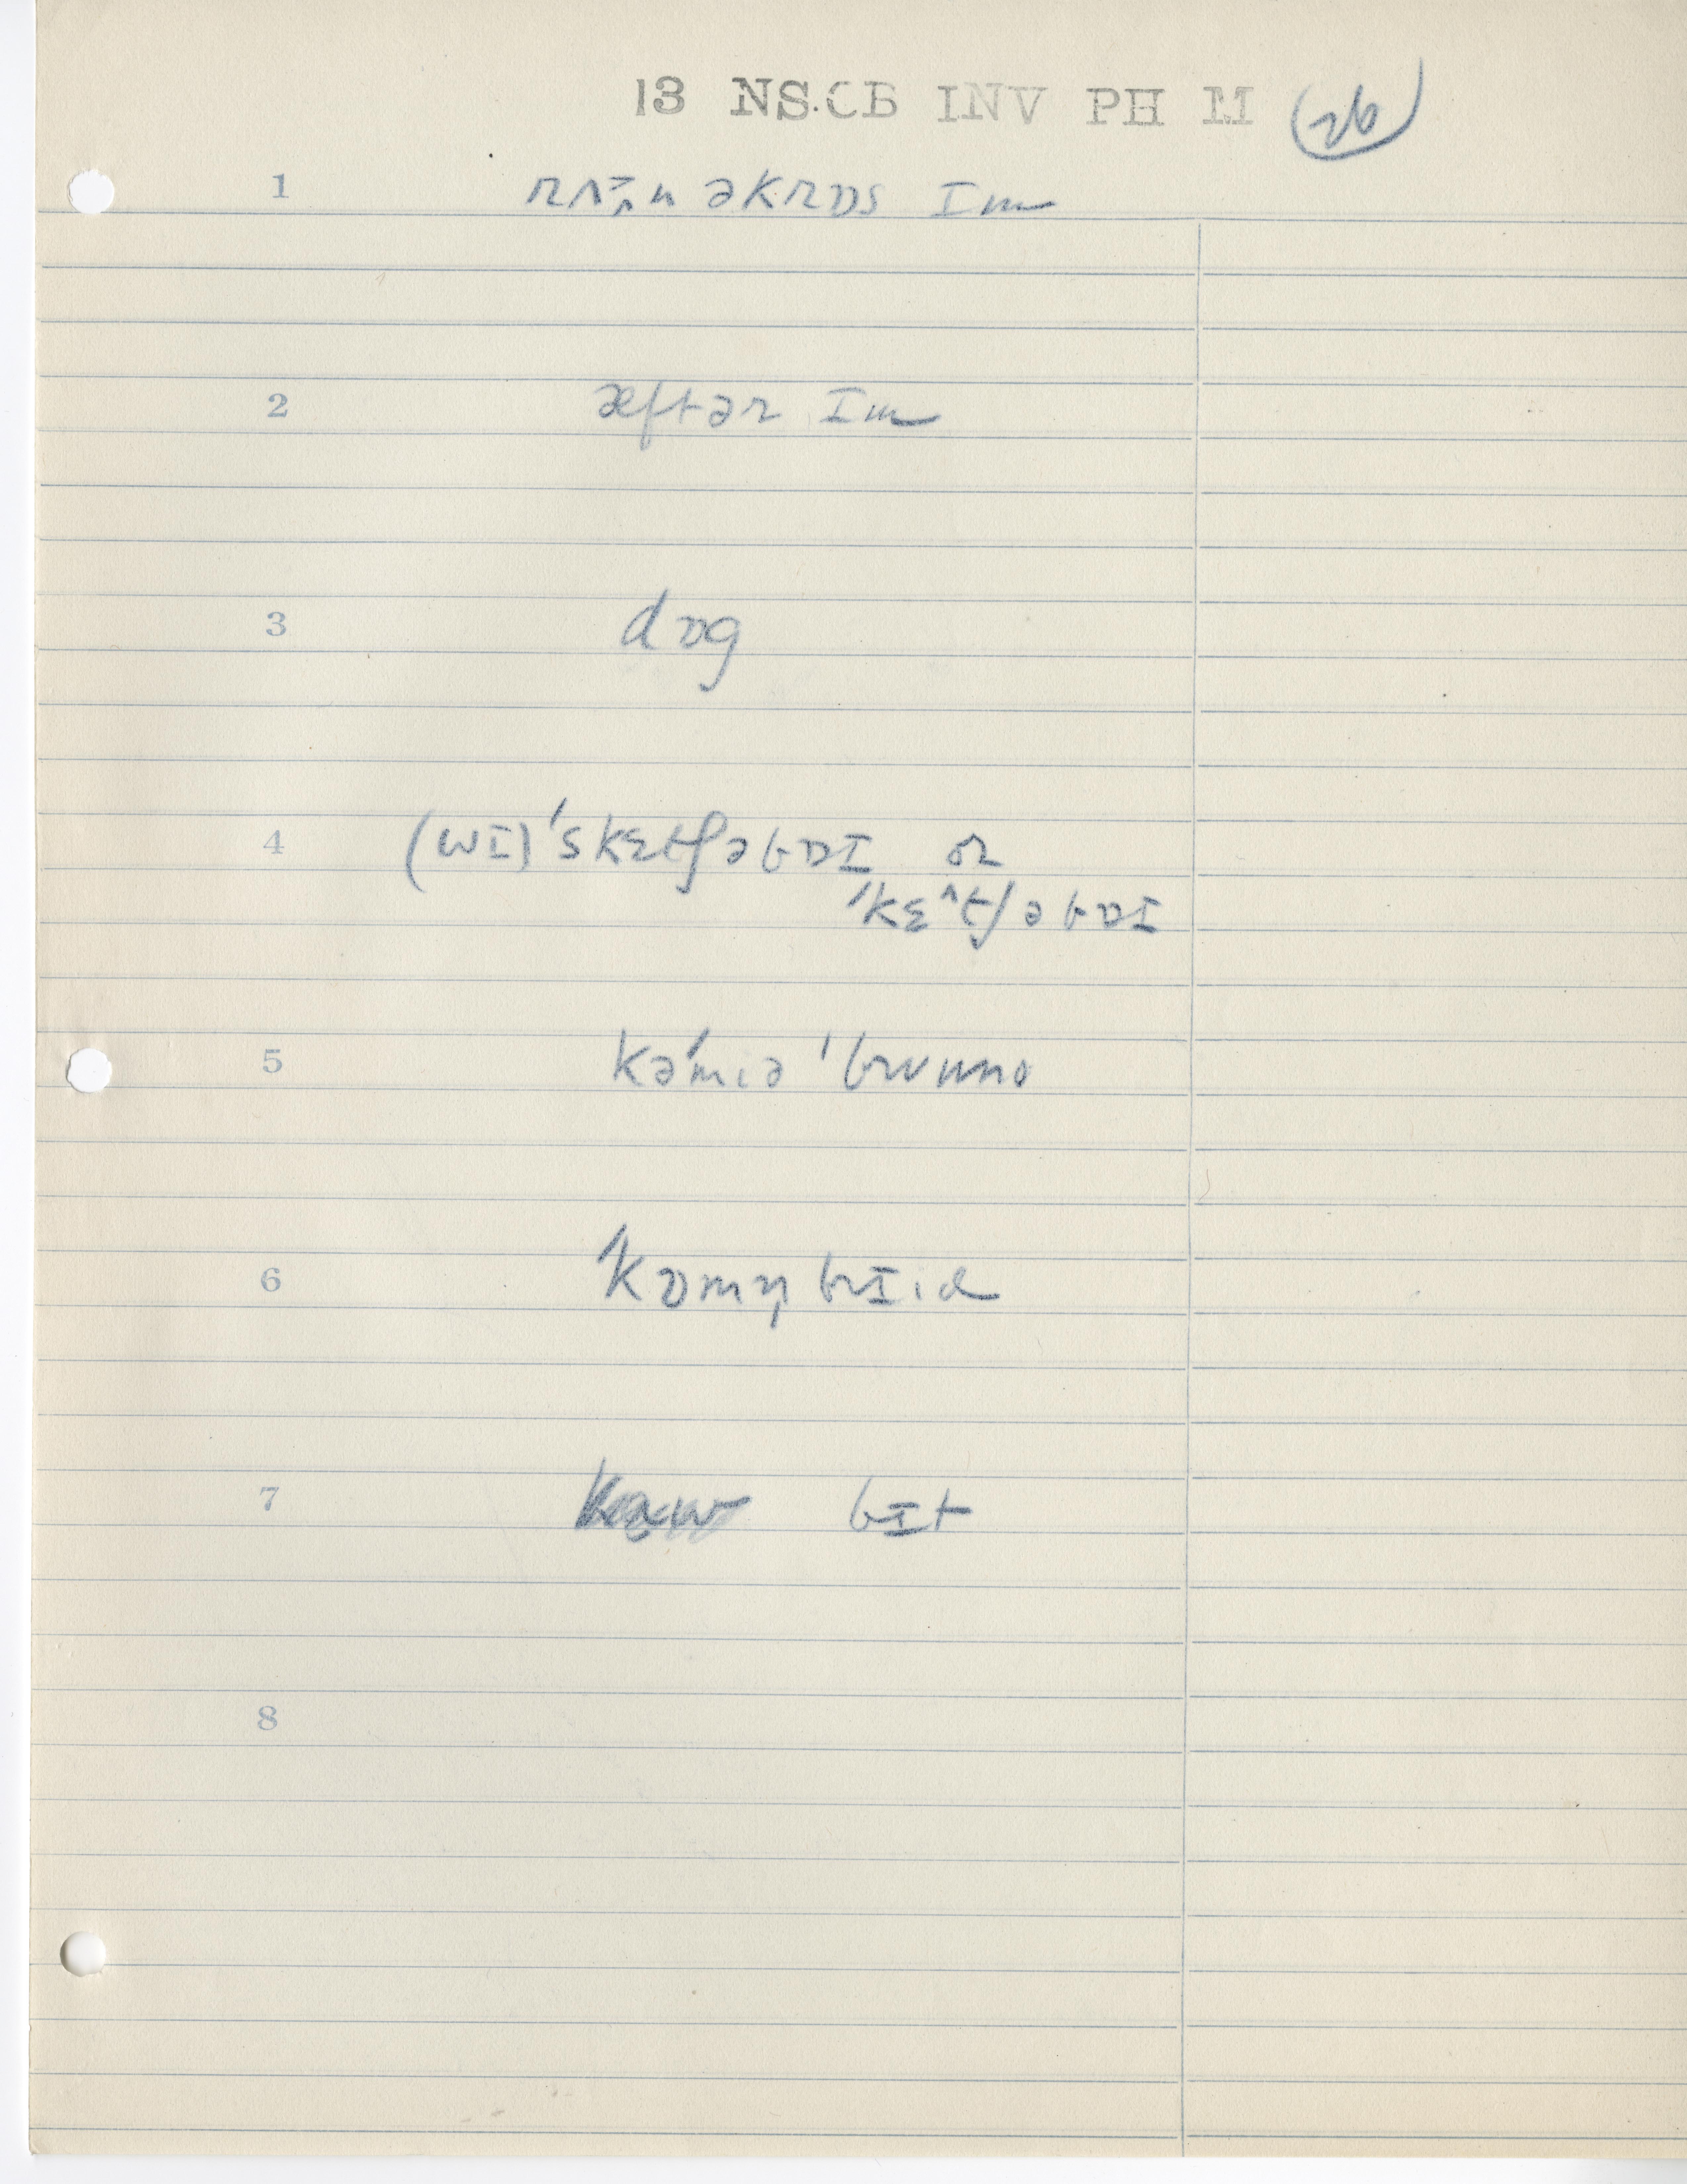 13 NS.CB INV PH M (26)
1 rʌɪ̯n əkrɒs ɪm
2 æftər ɪm
3 dɒg
4 (wɪ)'skɛtʃəbɒɪ or
'kɛ^tʃəbɒɪ
5 kə'miə 'brunno
6 'kɒmn̩ brɪid
7 bɪt
8